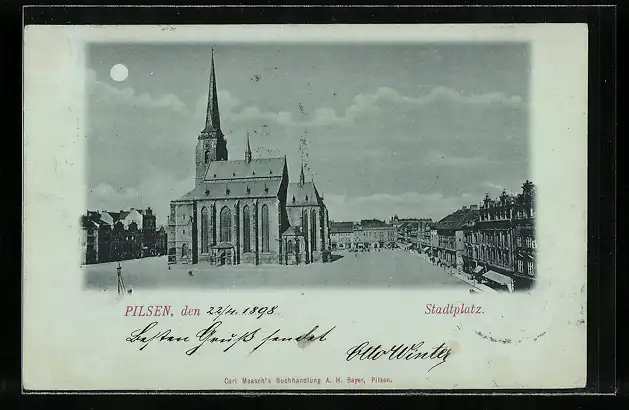 PILSEN, den 22/11. 1898.
Stadtplatz.
Besten Gruß sendet
Otto Winter
Carl Maasch's Buchhandlung A. H. Bayer, Pilsen.